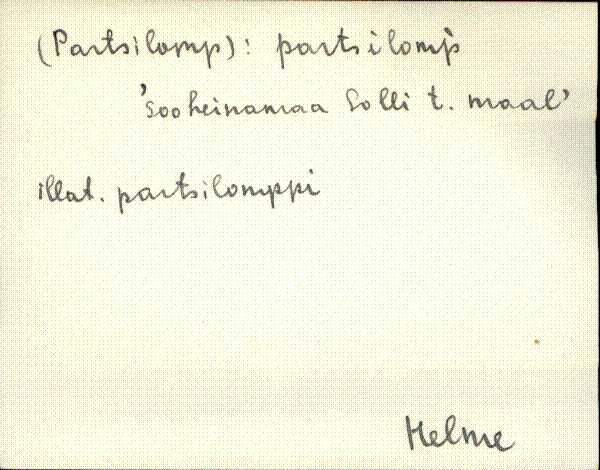 (Partsilomp): partsilomp̀
'sooheinamaa Solli t. maal'
illat. partsilomppi
Helme